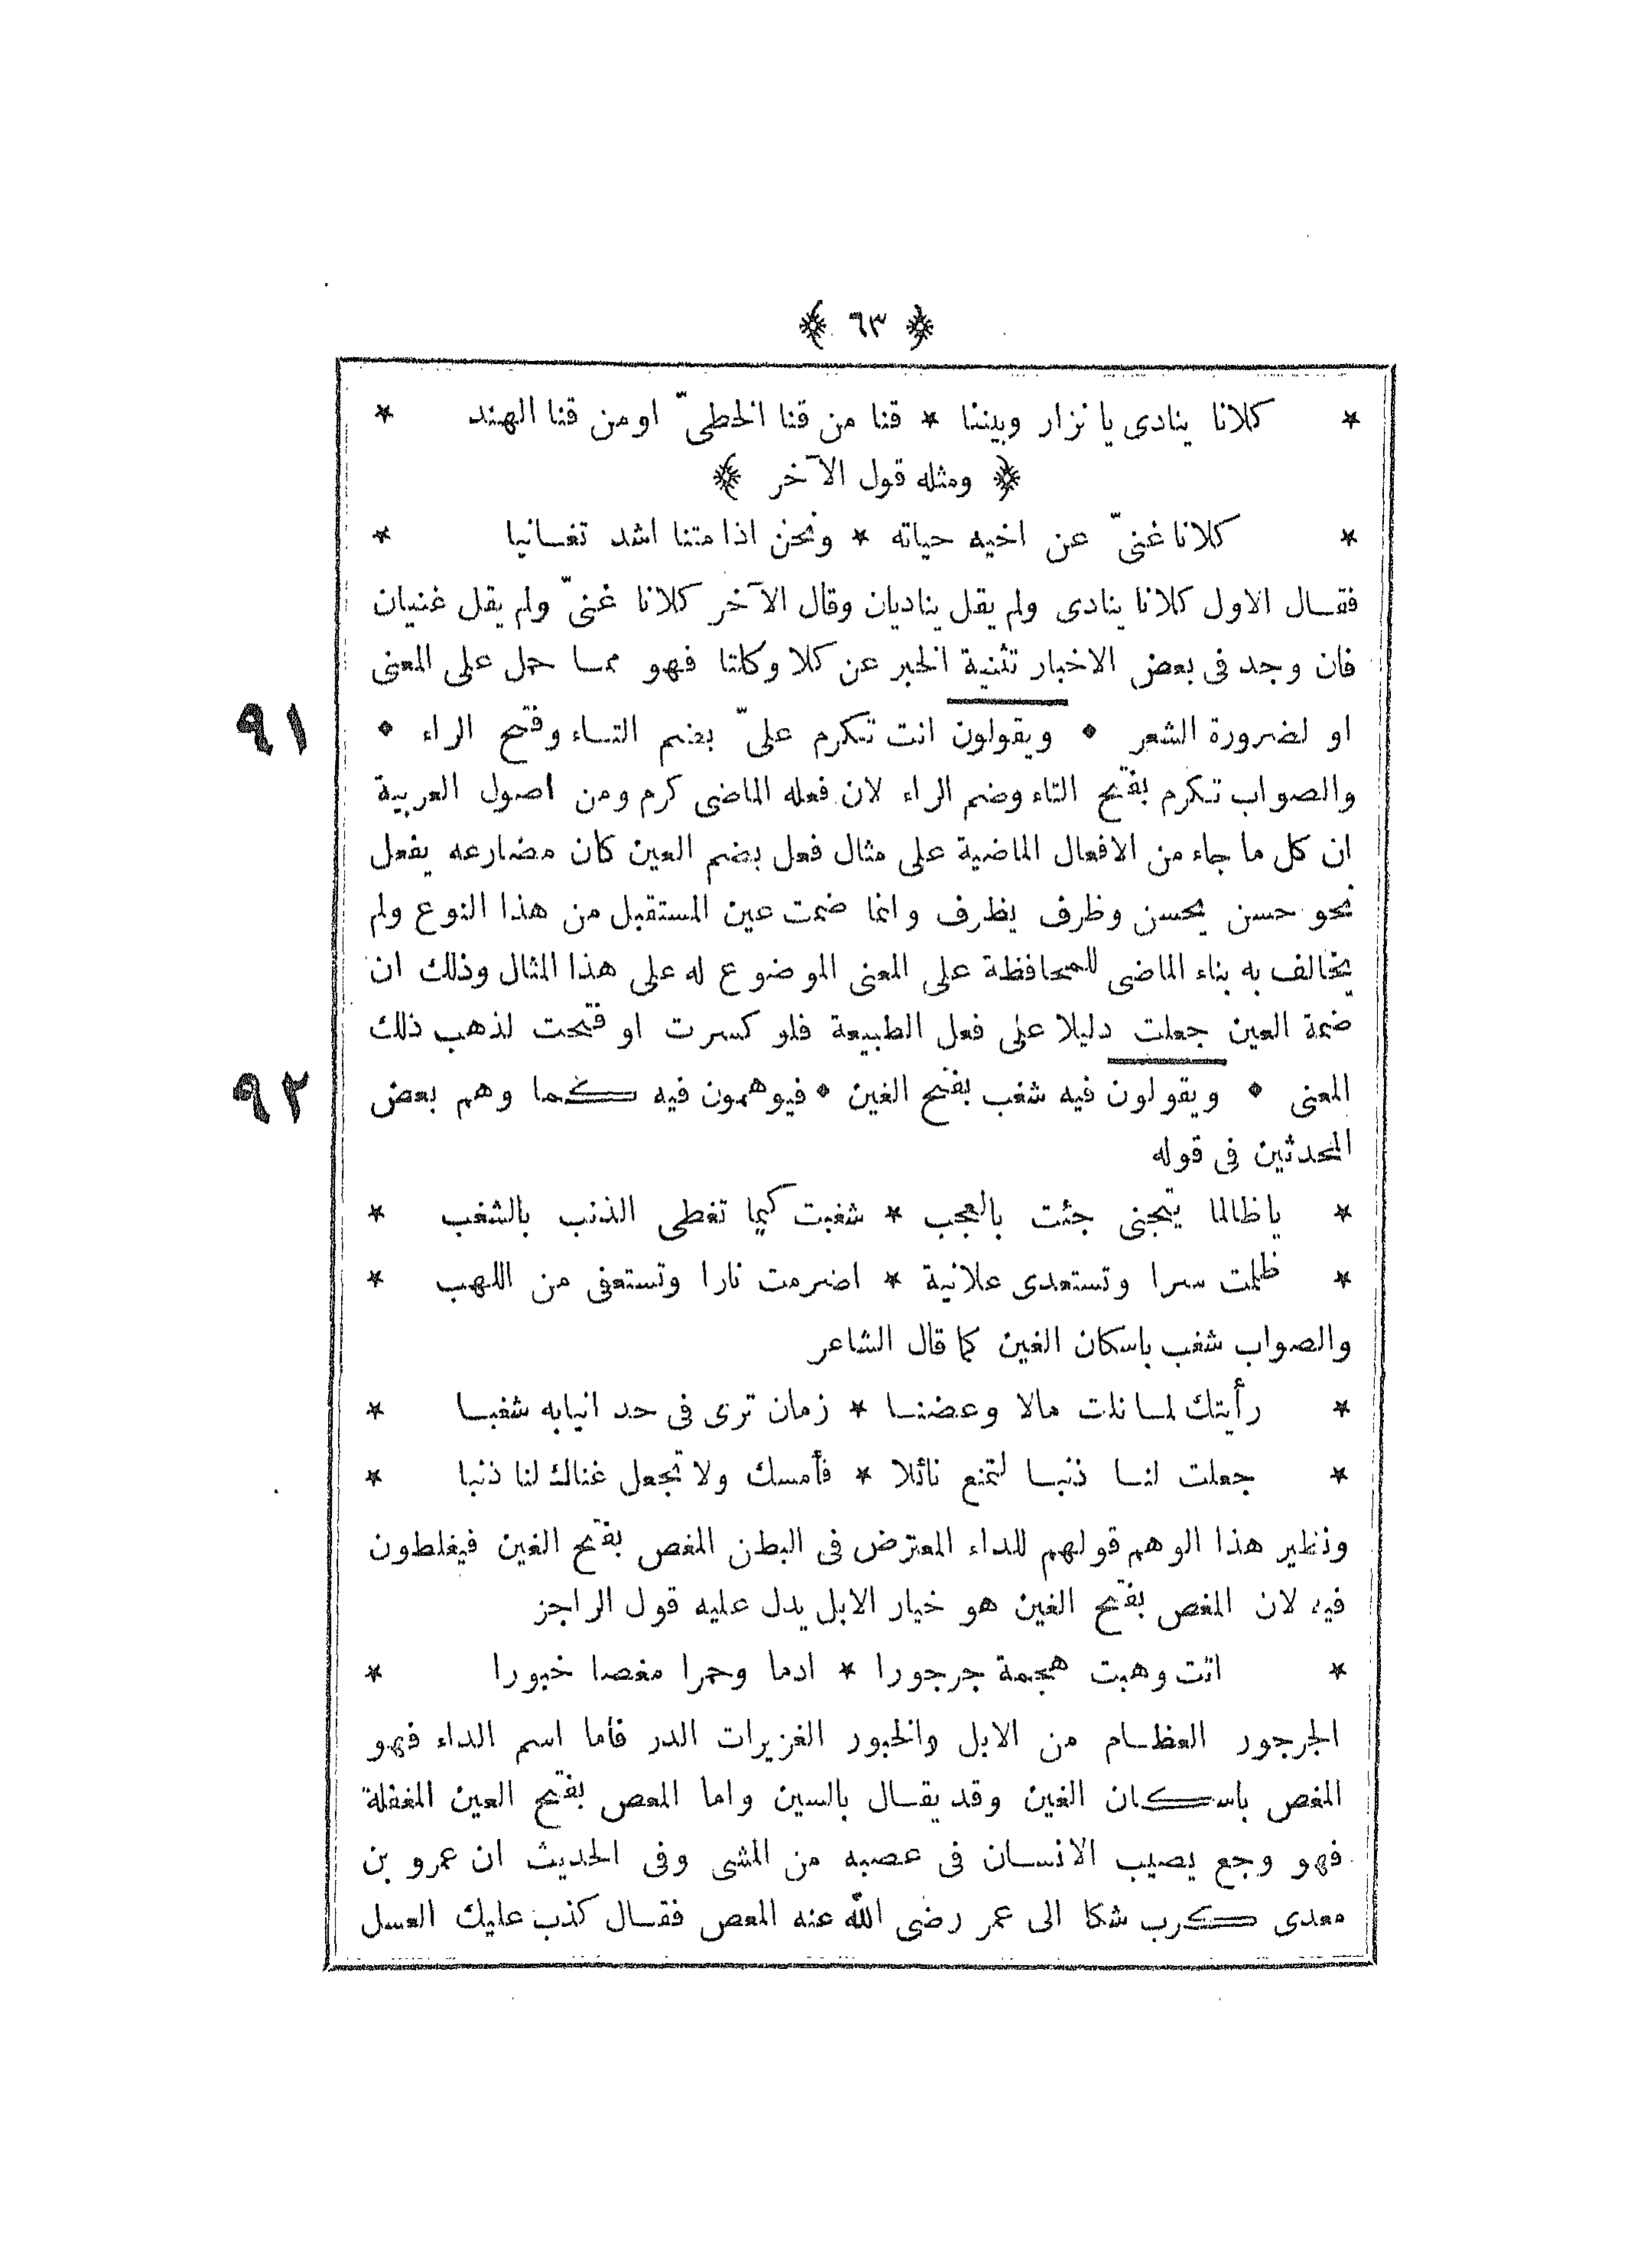 ﴿ ٦٣ ﴾
* كلانا ينادى يا نزار وبيننا * قنا من قنا الخطىّ او من قنا الهند *
﴿ ومثله قول الآخر ﴾
* كلانا غنىّ عن اخيه حياته * ونحن اذا متنا اشد تغانيا *
فقال الاول كلانا ينادى ولم يقل يناديان وقال الآخر كلانا غنىّ ولم يقل غنيان
فان وجد فى بعض الاخبار تثنية الخبر عن كلا وكلتا فهو مما حمل على المعنى
٩١ او لضرورة الشعر • ويقولون انت تكرم علىّ بضم التاء وفتح الراء •
والصواب تكرم بفتح التاء وضم الراء لان فعله الماضى كرم ومن اصول العربية
ان كل ما جاء من الافعال الماضية على مثال فعل بضم العين كان مضارعه يفعل
نحو حسن يحسن وظرف يظرف وانما ضمت عين المستقبل من هذا النوع ولم
يخالف به بناء الماضى للمحافظة على المعنى الموضوع له على هذا المثال وذلك ان
ضمة العين جعلت دليلا على فعل الطبيعة فلو كسرت او فتحت لذهب ذلك
٩٢ المعنى • ويقولون فيه شغب بفتح الغين • فيوهمون فيه كما وهم بعض
المحدثين فى قوله
* يا ظالما يتجنى جئت بالعجب * شغبت كيما تغطى الذنب بالشغب *
* ظلمت سرا وتستعدى علانية * اضرمت نارا وتستعفى من اللهب *
والصواب شغب باسكان الغين كما قال الشاعر
* رأيتك لما نلت مالا وعضنا * زمان ترى فى حد انيابه شغبا *
* جعلت لنا ذنبا لتمنع نائلا * فأمسك ولا تجعل غناك لنا ذنبا *
ونظير هذا الوهم قولهم للداء المعترض فى البطن المغص بفتح الغين فيغلطون
فيه لان المغص بفتح الغين هو خيار الابل يدل عليه قول الراجز
* انت وهبت هجمة جرجورا * ادما وحمرا مغصا خبورا *
الجرجور العظام من الابل والخبور الغزيرات الدر فأما اسم الداء فهو
المغص باسكان الغين وقد يقال بالسين واما المعص بفتح العين المغفلة
فهو وجع يصيب الانسان فى عصبه من المشى وفى الحديث ان عمرو بن
معدى كرب شكا الى عمر رضى الله عنه المعص فقال كذب عليك العسل